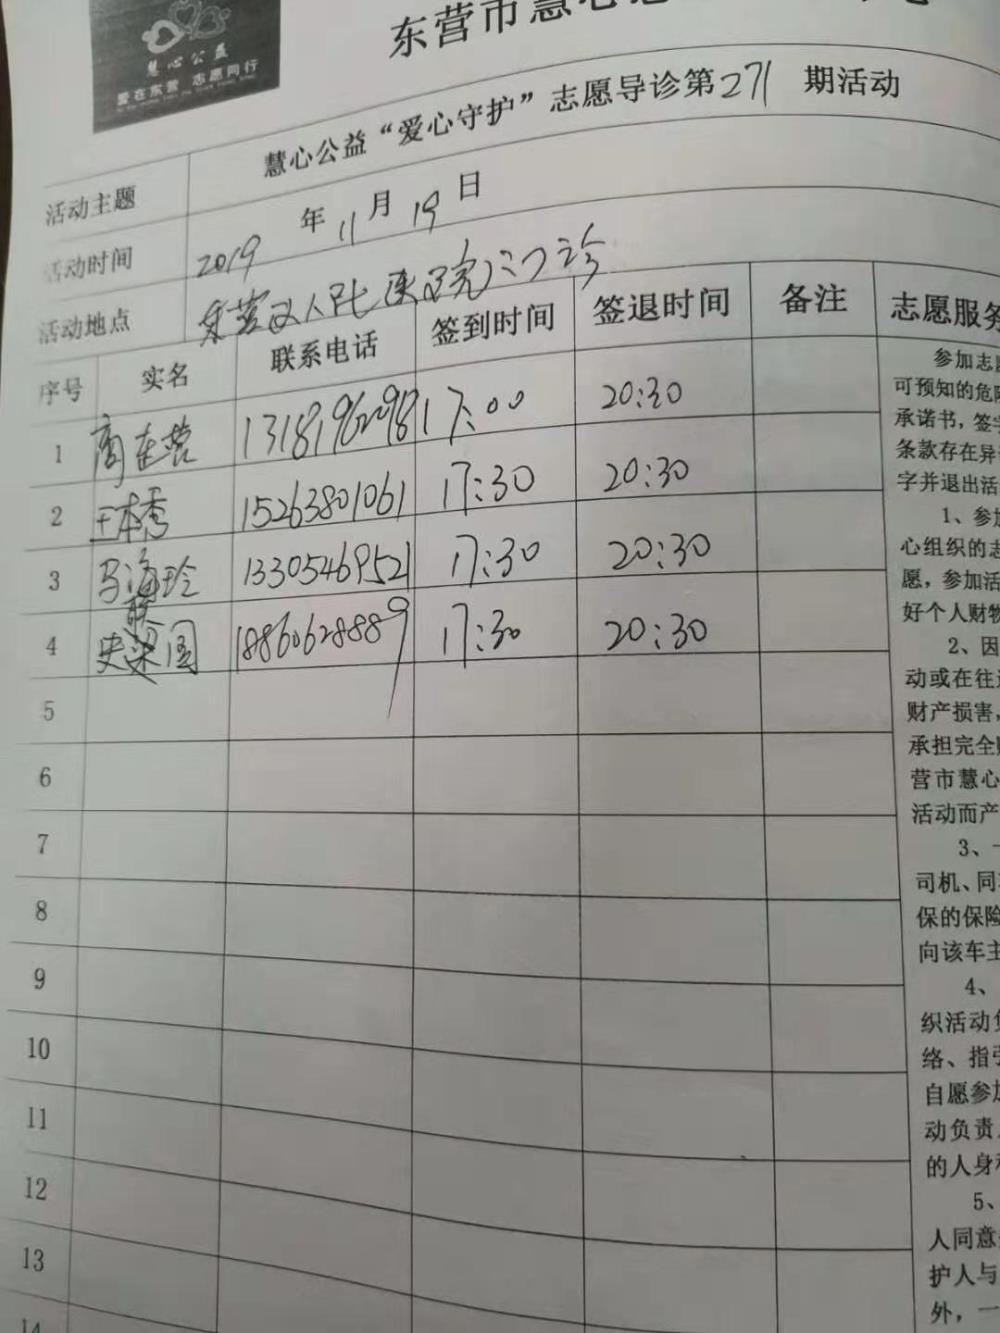 慧心公益
爱在东营 志愿同行
东营市慧心
活动主题 慧心公益“爱心守护”志愿导诊第271期活动
活动时间 2019年11月19日
活动地点 东营区人民医院门诊
序号 实名 联系电话 签到时间 签退时间 备注 志愿服务
1 17:00 20:30
2 王本秀 15263801061 17:30 20:30
3 马海玲 13305469521 17:30 20:30
4 史 国 18860628889 17:30 20:30
5
6
7
8
9
10
11
12
13
14
参加志愿
可预知的危险
承诺书，签字
条款存在异
字并退出活
1、参加
心组织的志
愿，参加活
好个人财物
2、因
动或在往
财产损害，
承担完全
营市慧心
活动而产
3、
司机、同
保的保险
向该车主
4、
织活动负
络、指引
自愿参加
动负责
的人身
5、
人同意
护人与
外，一